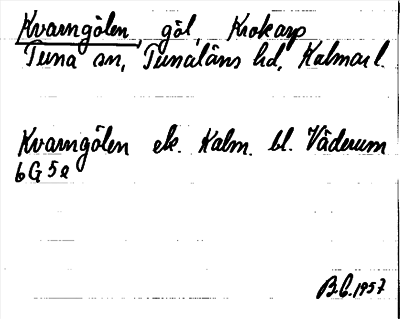 Kvarngölen, göl, Krokarp
Tuna sn, Tunaläns hd, Kalmar l.
Kvarngölen ek. Kalm. bl. Väderum
6G5e
B.G. 1957